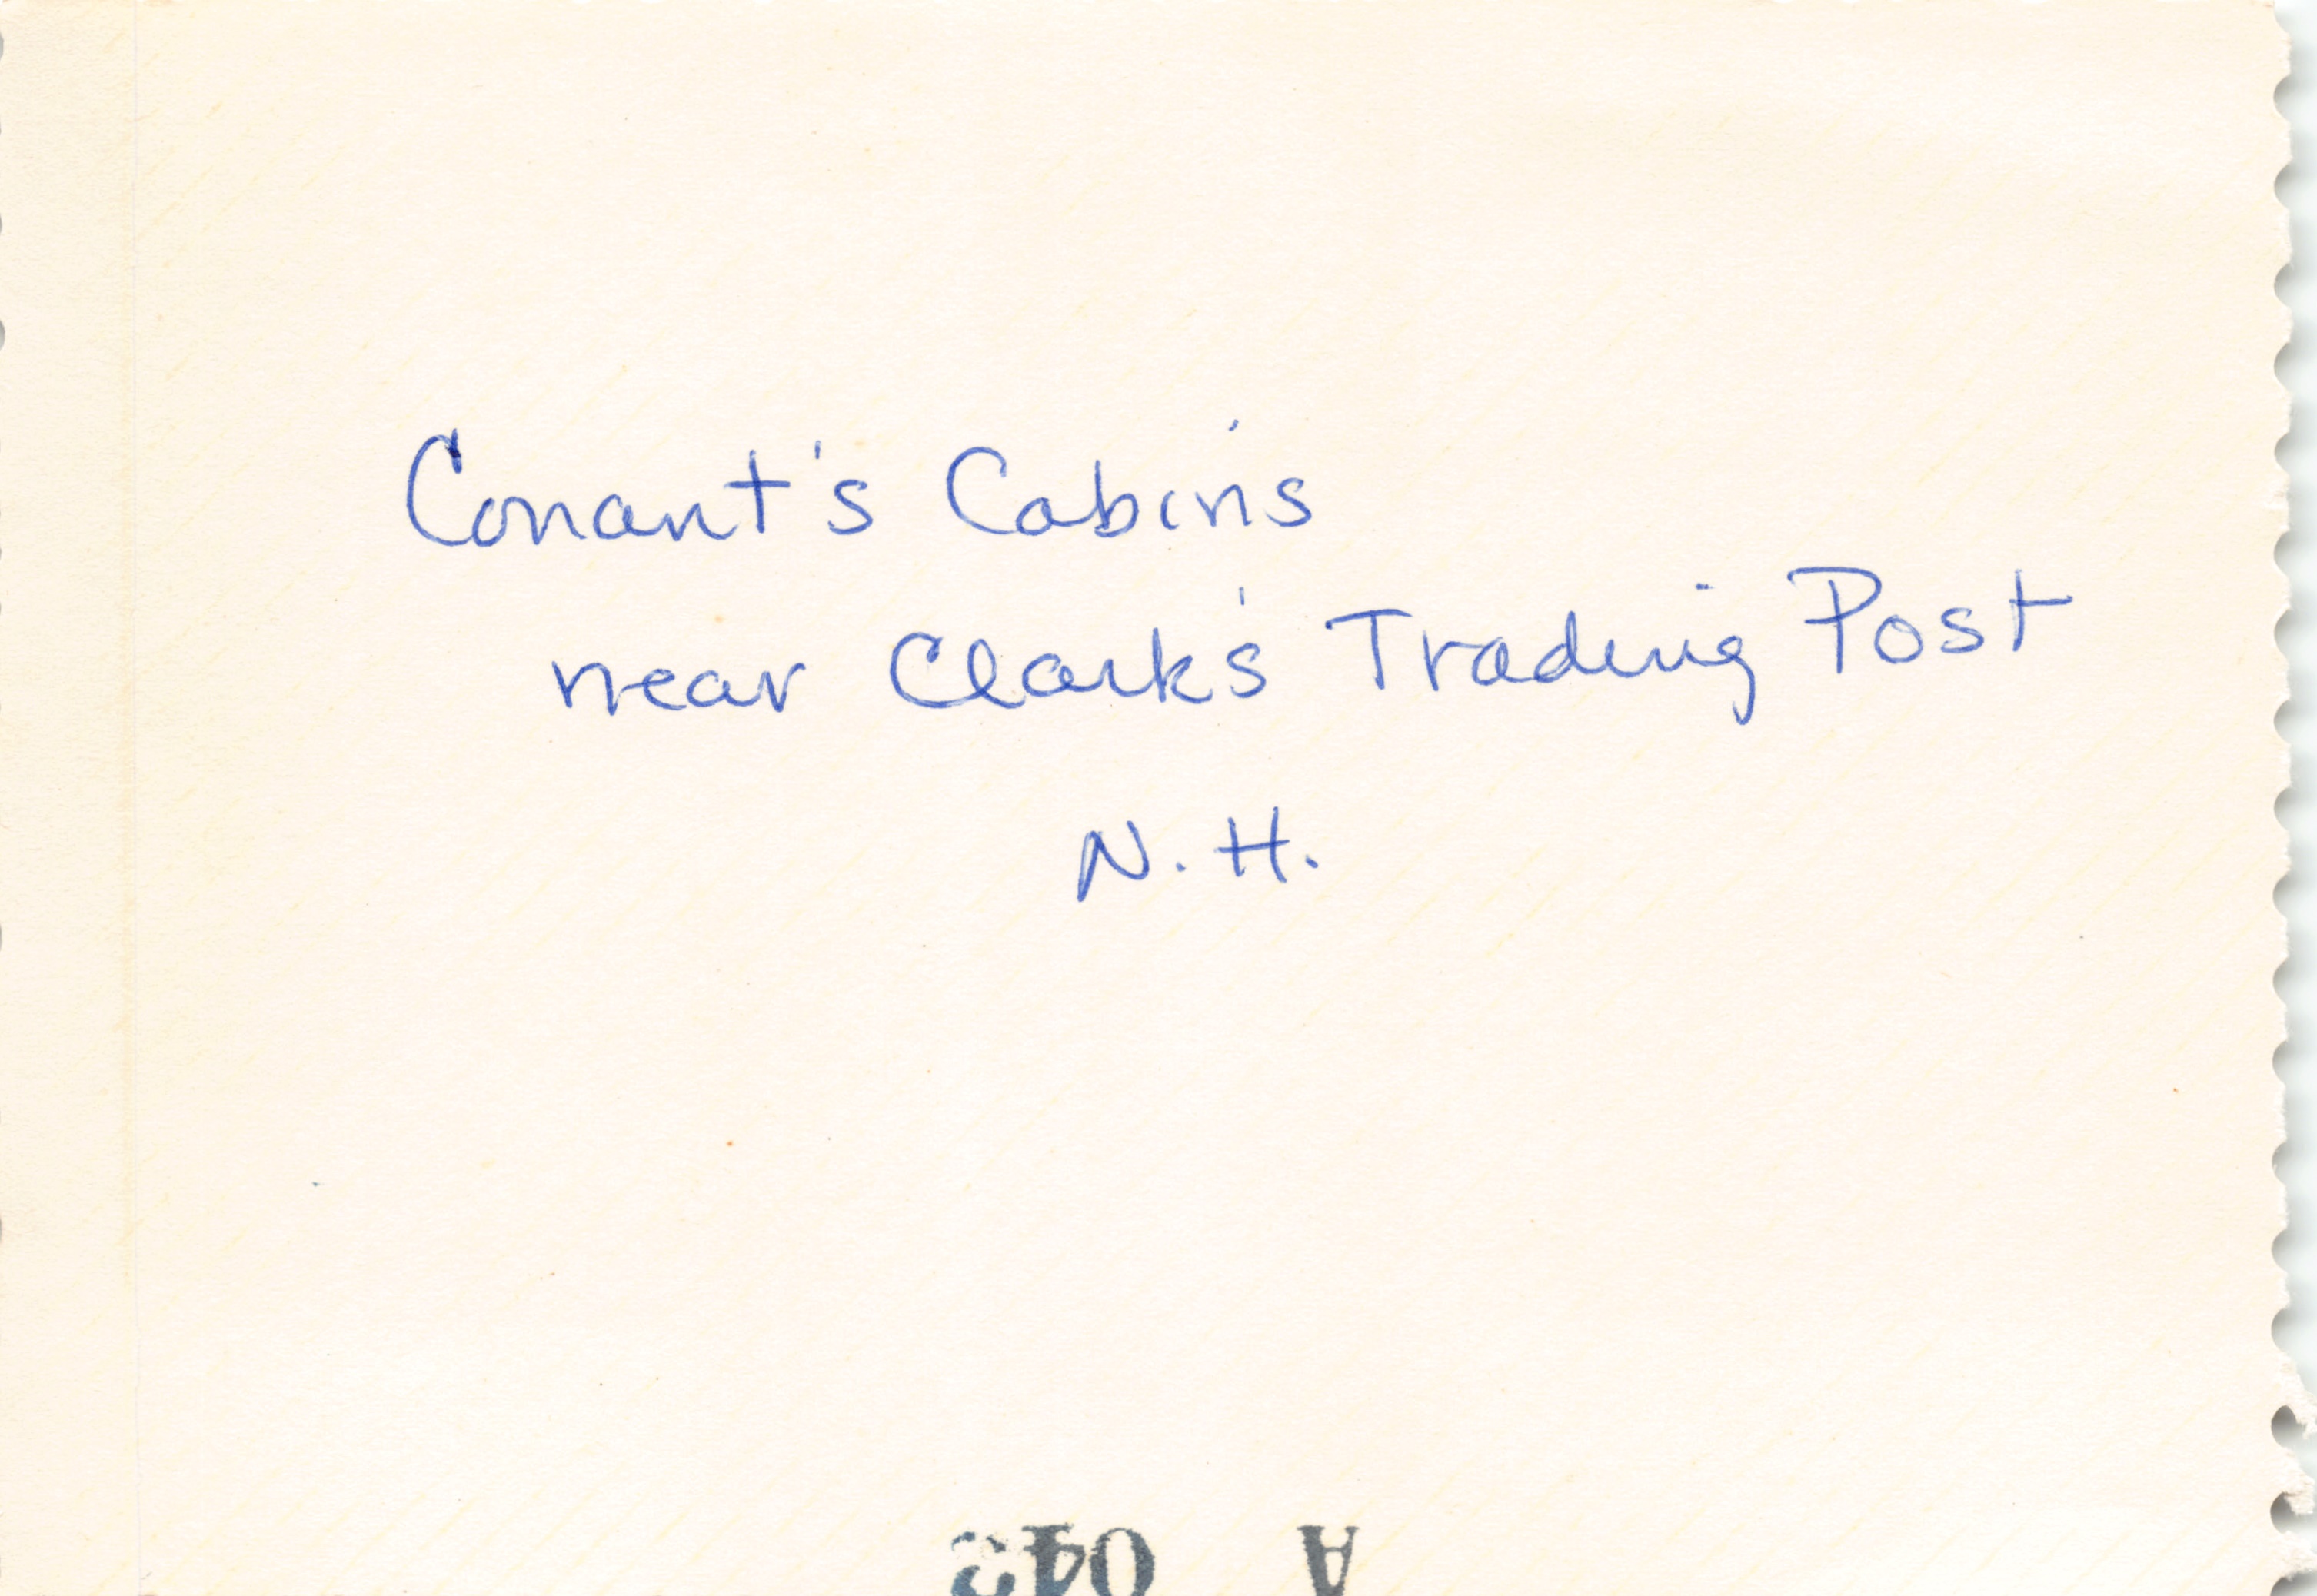 Conant's Cabins
near Clark's Trading Post
N. H.